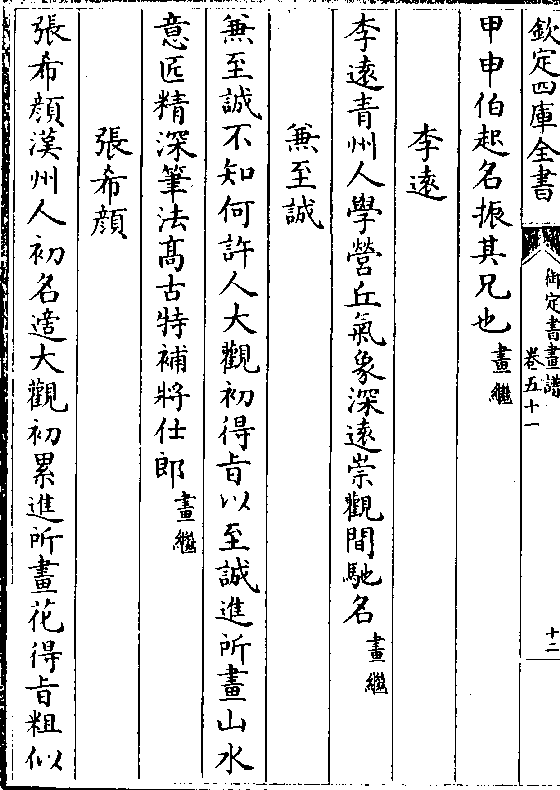 欽定四庫全書
御定書畫譜
卷五十一
十二
甲申伯起名振其兄也畫繼
李遠
李遠青州人學營丘氣象深遠崇觀間馳名畫繼
兼至誠
兼至誠不知何許人大觀初得旨以至誠進所畫山水
意匠精深筆法髙古特補將仕郎畫繼
張希顔
張希顔漢州人初名適大觀初累進所畫花得旨粗似